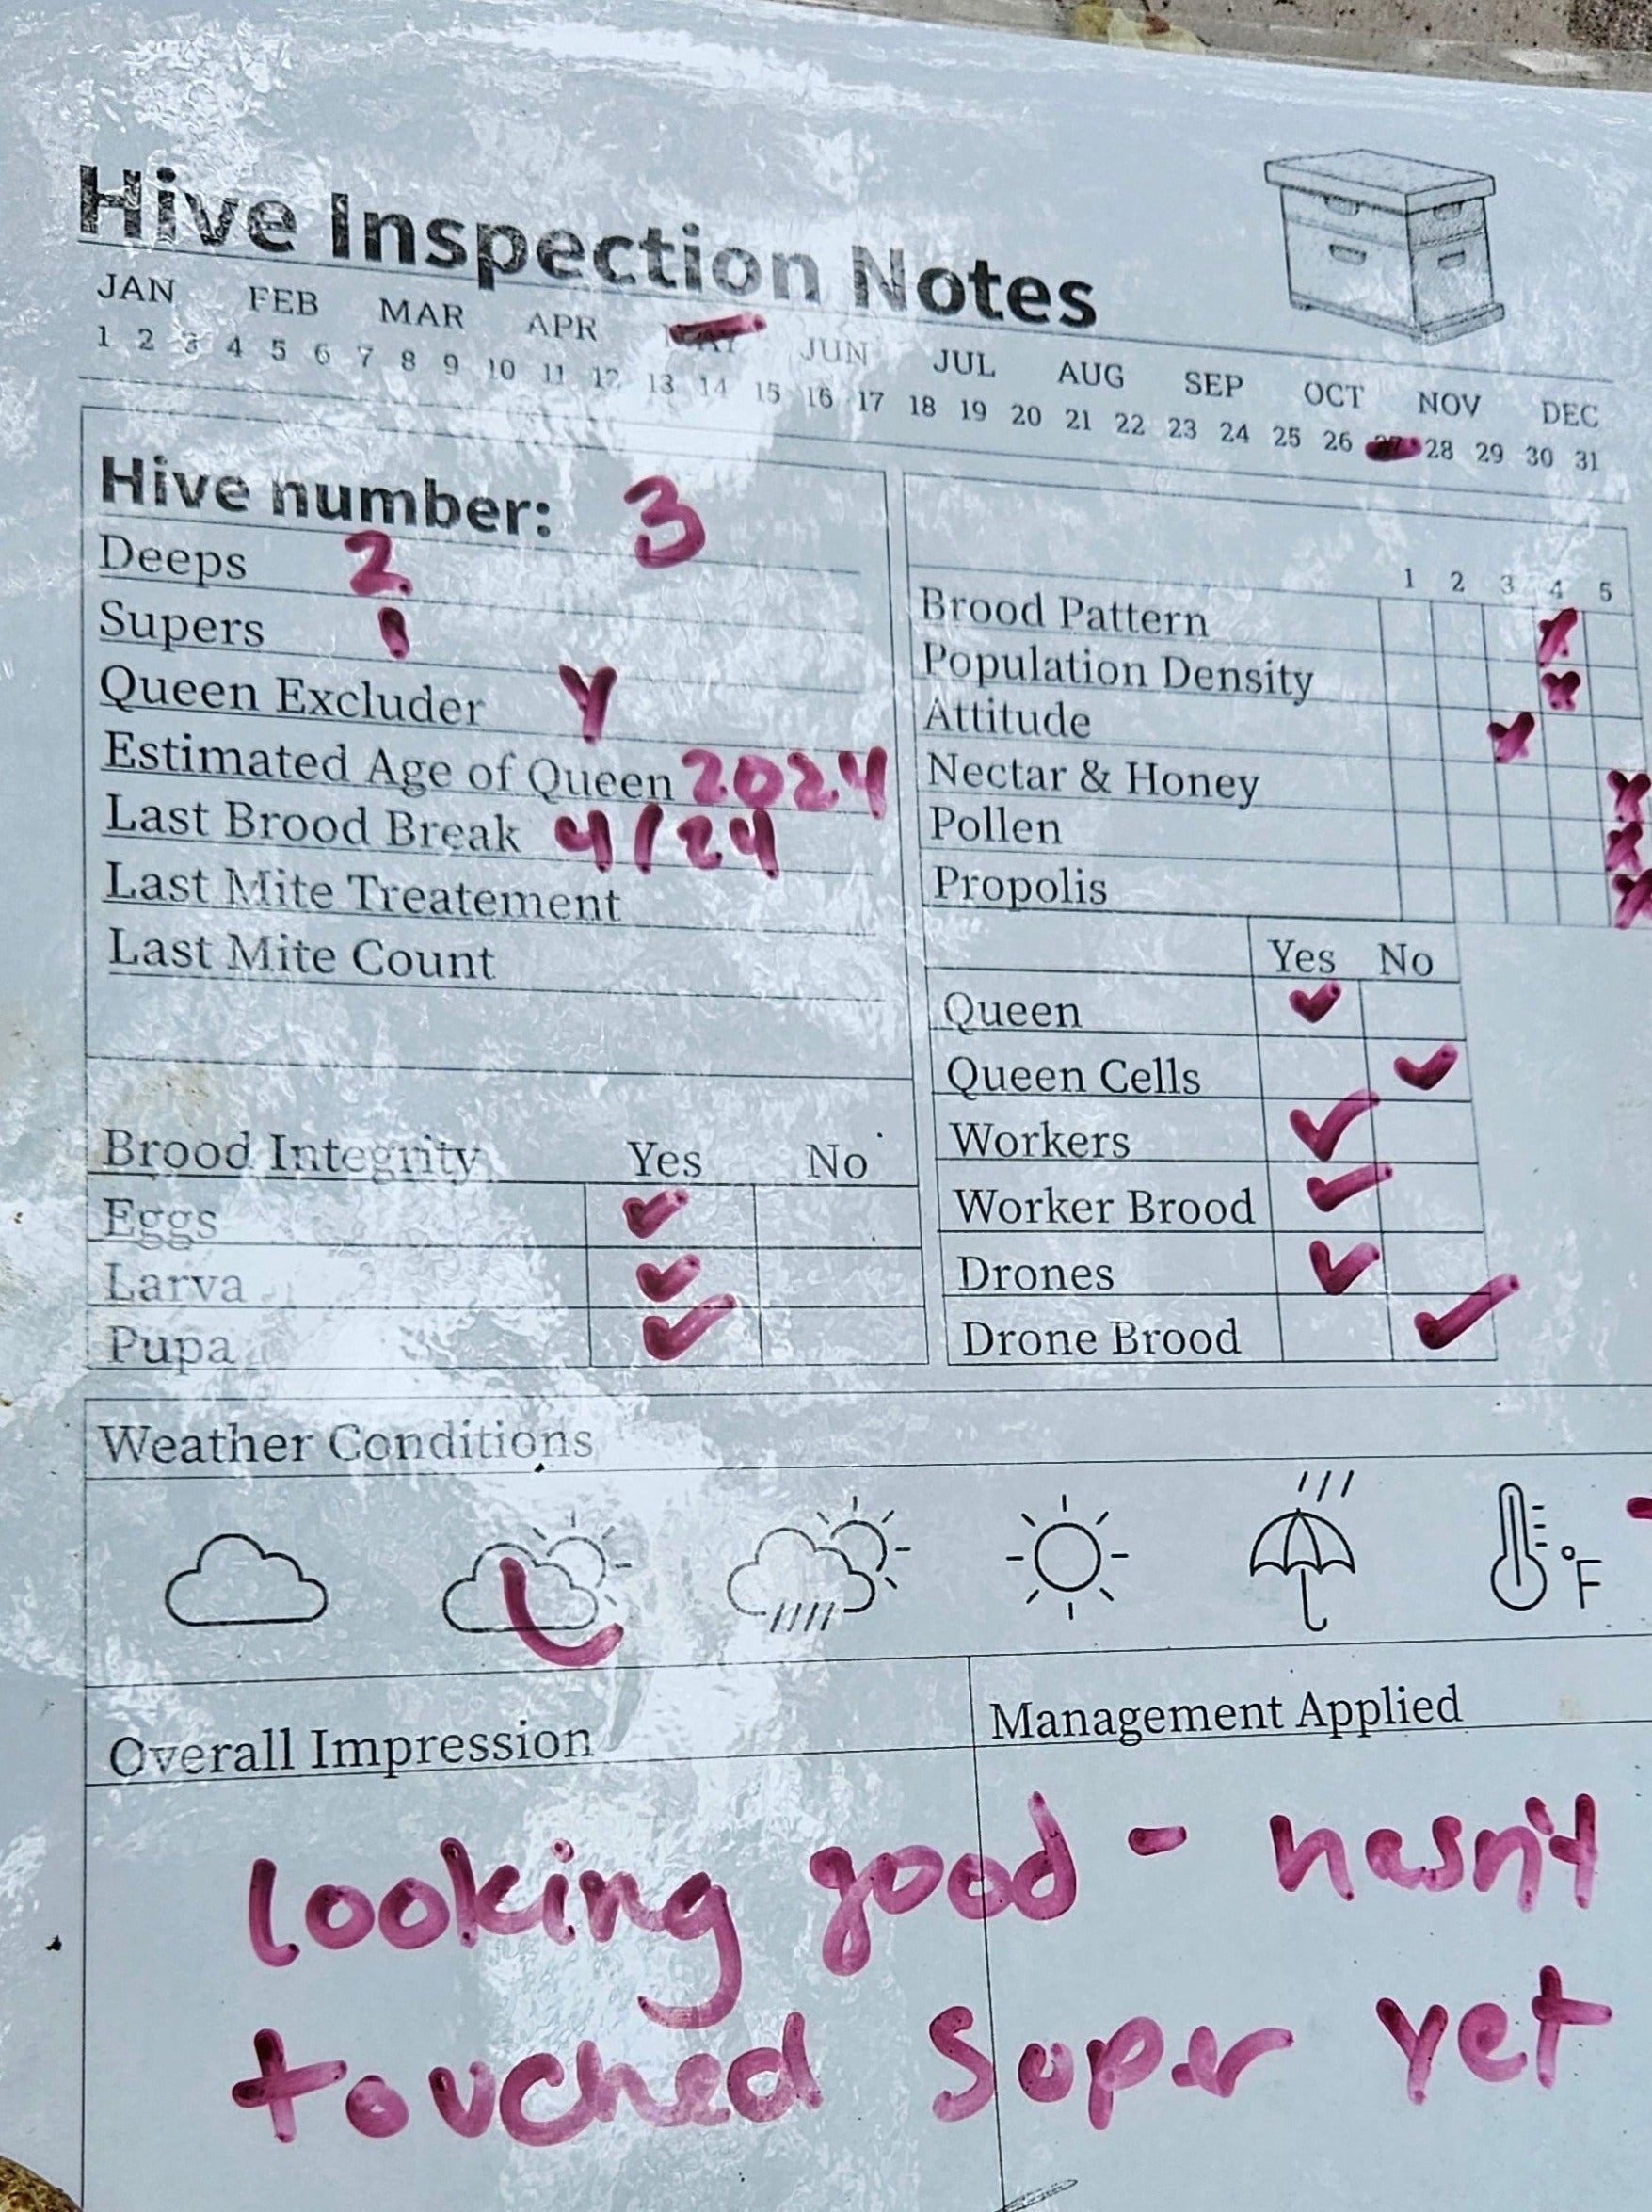 Hive Inspection Notes
JAN FEB MAR APR MAY JUN JUL AUG SEP OCT NOV DEC
1 2 3 4 5 6 7 8 9 10 11 12 13 14 15 16 17 18 19 20 21 22 23 24 25 26 27 28 29 30 31
Hive number: 3
Deeps 2
Supers 1
Queen Excluder Y
Estimated Age of Queen 2024
Last Brood Break 4/24
Last Mite Treatement
Last Mite Count
1 2 3 4 5
Brood Pattern
Population Density
Attitude
Nectar & Honey
Pollen
Propolis
Yes No
Queen
Queen Cells
Workers
Worker Brood
Drones
Drone Brood
Brood Integrity Yes No
Eggs
Larva
Pupa
Weather Conditions
°F
Overall Impression
Management Applied
looking good - hasn't
touched super yet